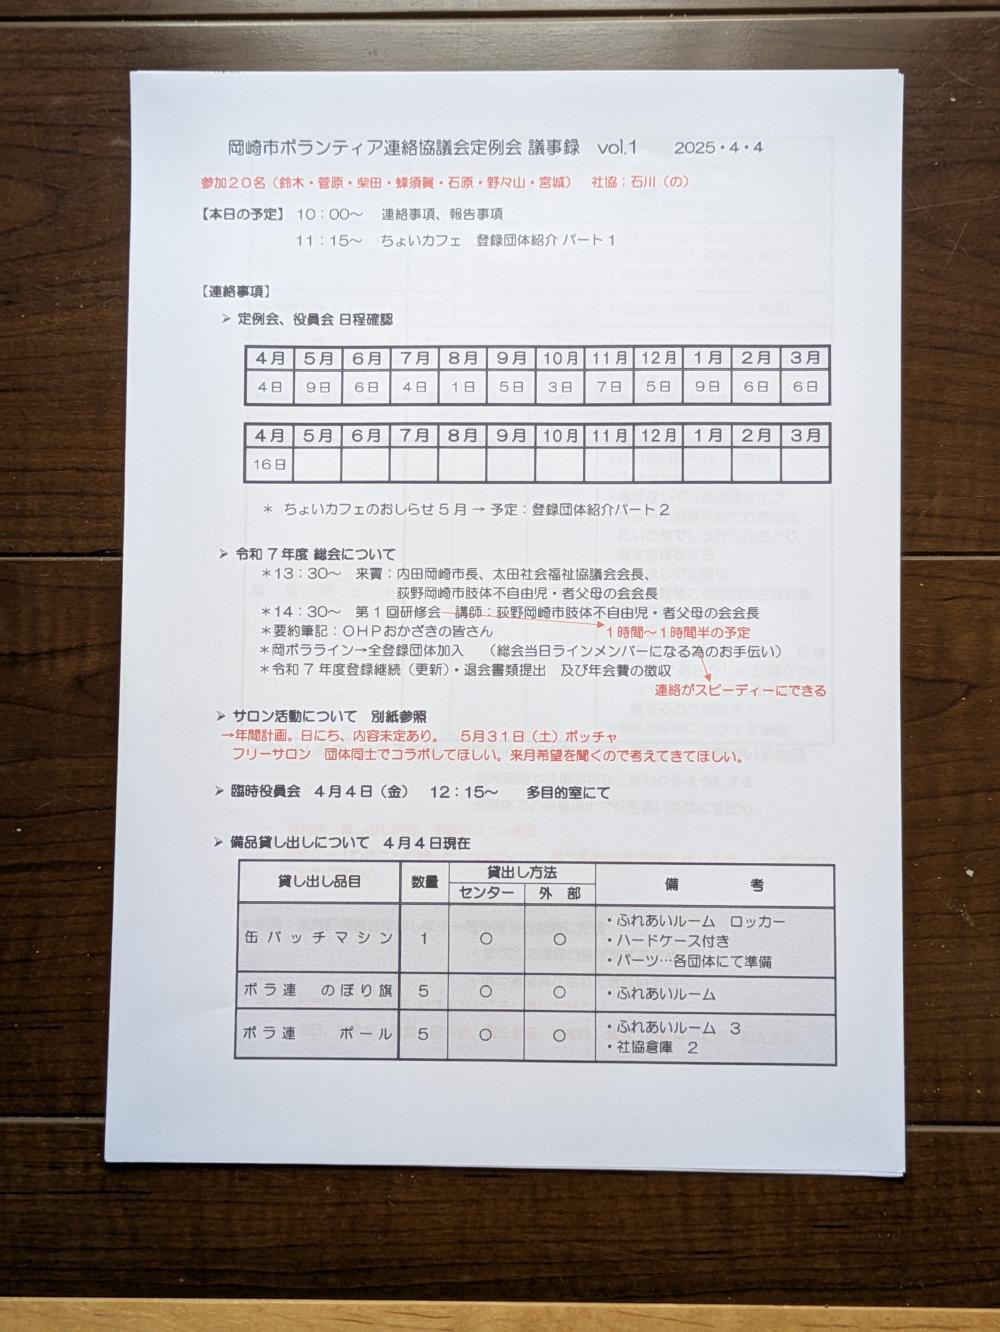 岡崎市ボランティア連絡協議会定例会 議事録　vol.1　　2025・4・4
参加20名（鈴木・菅原・柴田・蜂須賀・石原・野々山・宮城）　社協：石川（の）
【本日の予定】 10：00～　連絡事項、報告事項
11：15～　ちょいカフェ　登録団体紹介 パート1
【連絡事項】
➢ 定例会、役員会 日程確認
4月 5月 6月 7月 8月 9月 10月 11月 12月 1月 2月 3月
4日 9日 6日 4日 1日 5日 3日 7日 5日 9日 6日 6日
4月 5月 6月 7月 8月 9月 10月 11月 12月 1月 2月 3月
16日
＊ ちょいカフェのおしらせ5月→予定：登録団体紹介パート2
➢ 令和7年度 総会について
＊13：30～　来賓：内田岡崎市長、太田社会福祉協議会会長、
荻野岡崎市肢体不自由児・者父母の会会長
＊14：30～　第1回研修会　講師：荻野岡崎市肢体不自由児・者父母の会会長
＊要約筆記：OHPおかざきの皆さん
1時間～1時間半の予定
＊岡ボラライン→全登録団体加入　（総会当日ラインメンバーになる為のお手伝い）
＊令和7年度登録継続（更新）・退会書類提出　及び年会費の徴収
連絡がスピーディーにできる
➢ サロン活動について　別紙参照
→年間計画。日にち、内容未定あり。　5月31日（土）ボッチャ
フリーサロン　団体同士でコラボしてほしい。来月希望を聞くので考えてきてほしい。
➢ 臨時役員会　4月4日（金）　12：15～　　多目的室にて
➢ 備品貸し出しについて　4月4日現在
貸し出し品目 数量 貸出し方法 備　考
センター 外　部
缶バッチマシン 1 ○ ○ ・ふれあいルーム　ロッカー
・ハードケース付き
・パーツ…各団体にて準備
ボラ連　のぼり旗 5 ○ ○ ・ふれあいルーム
ボラ連　ポール 5 ○ ○ ・ふれあいルーム　3
・社協倉庫　2